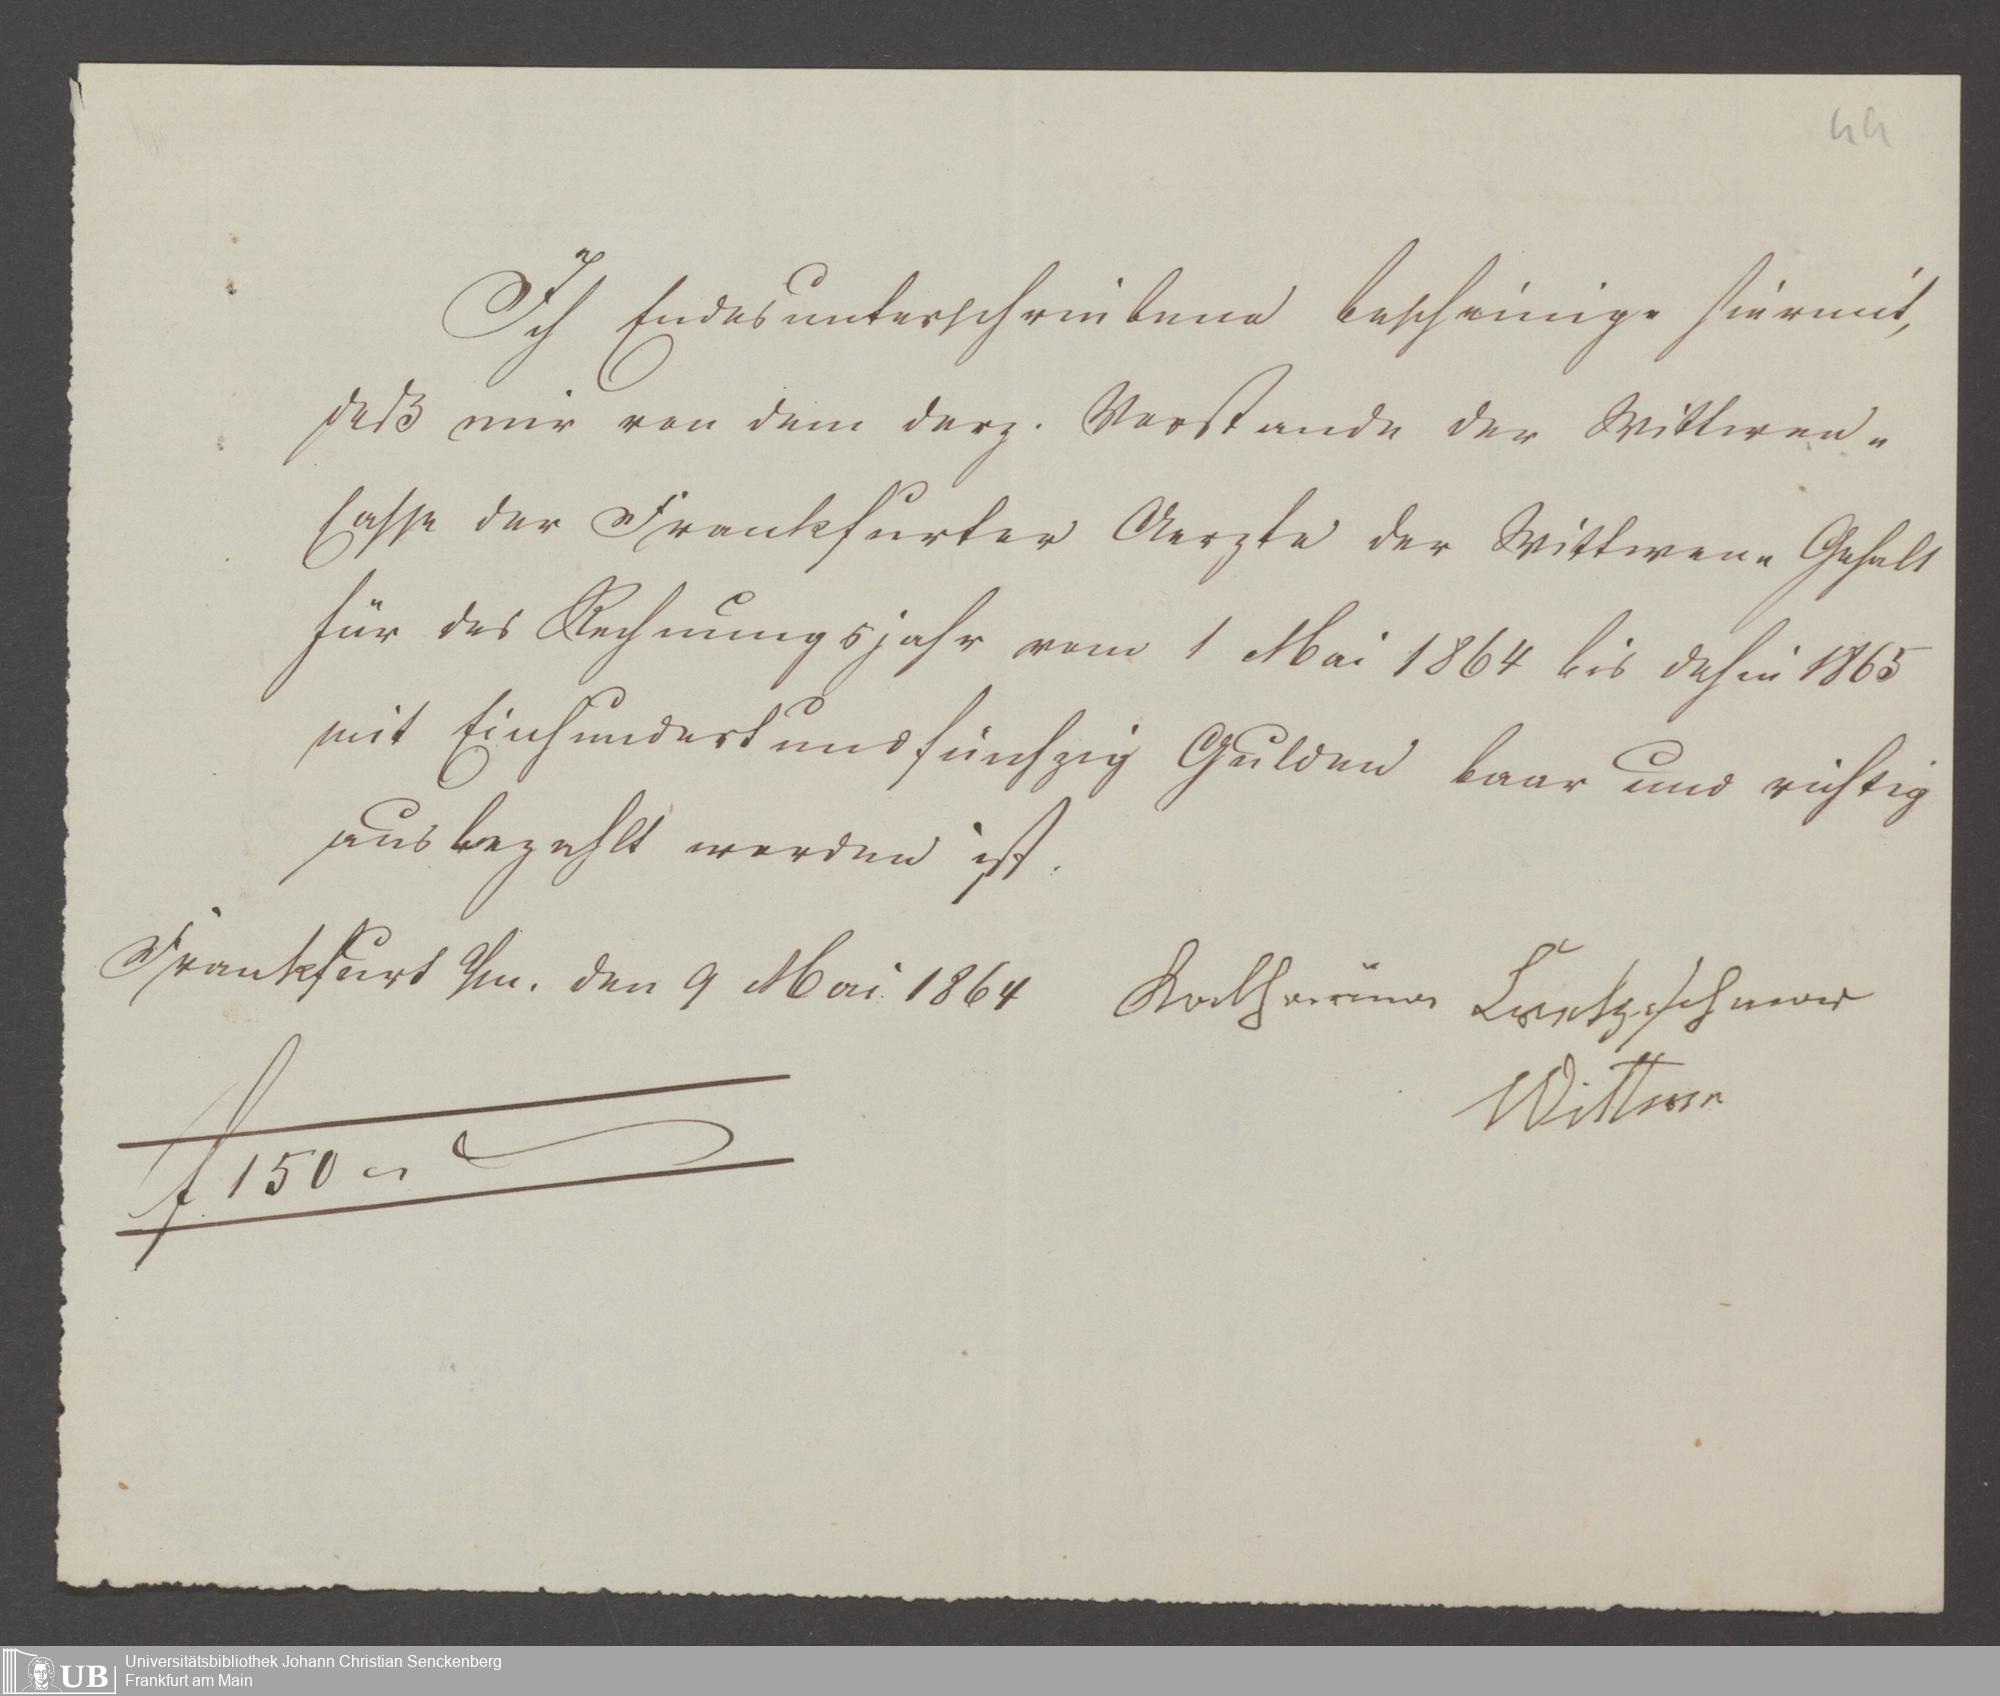 44
Ich Endesunterschriebene bescheinige hiermit,
daß mir von dem derz. Vorstande der Wittwen-
Casse der Frankfurter Aerzte der Wittwen-Gehalt
für das Rechnungsjahr vom 1 Mai 1864 bis dahin 1865
mit Einhundertundfünfzig Gulden baar und richtig
ausbezahlt worden ist.
Frankfurt a/m. den 9 Mai 1864 Katharina
Wittwe
f 150 "
UB Universitätsbibliothek Johann Christian Senckenberg
Frankfurt am Main